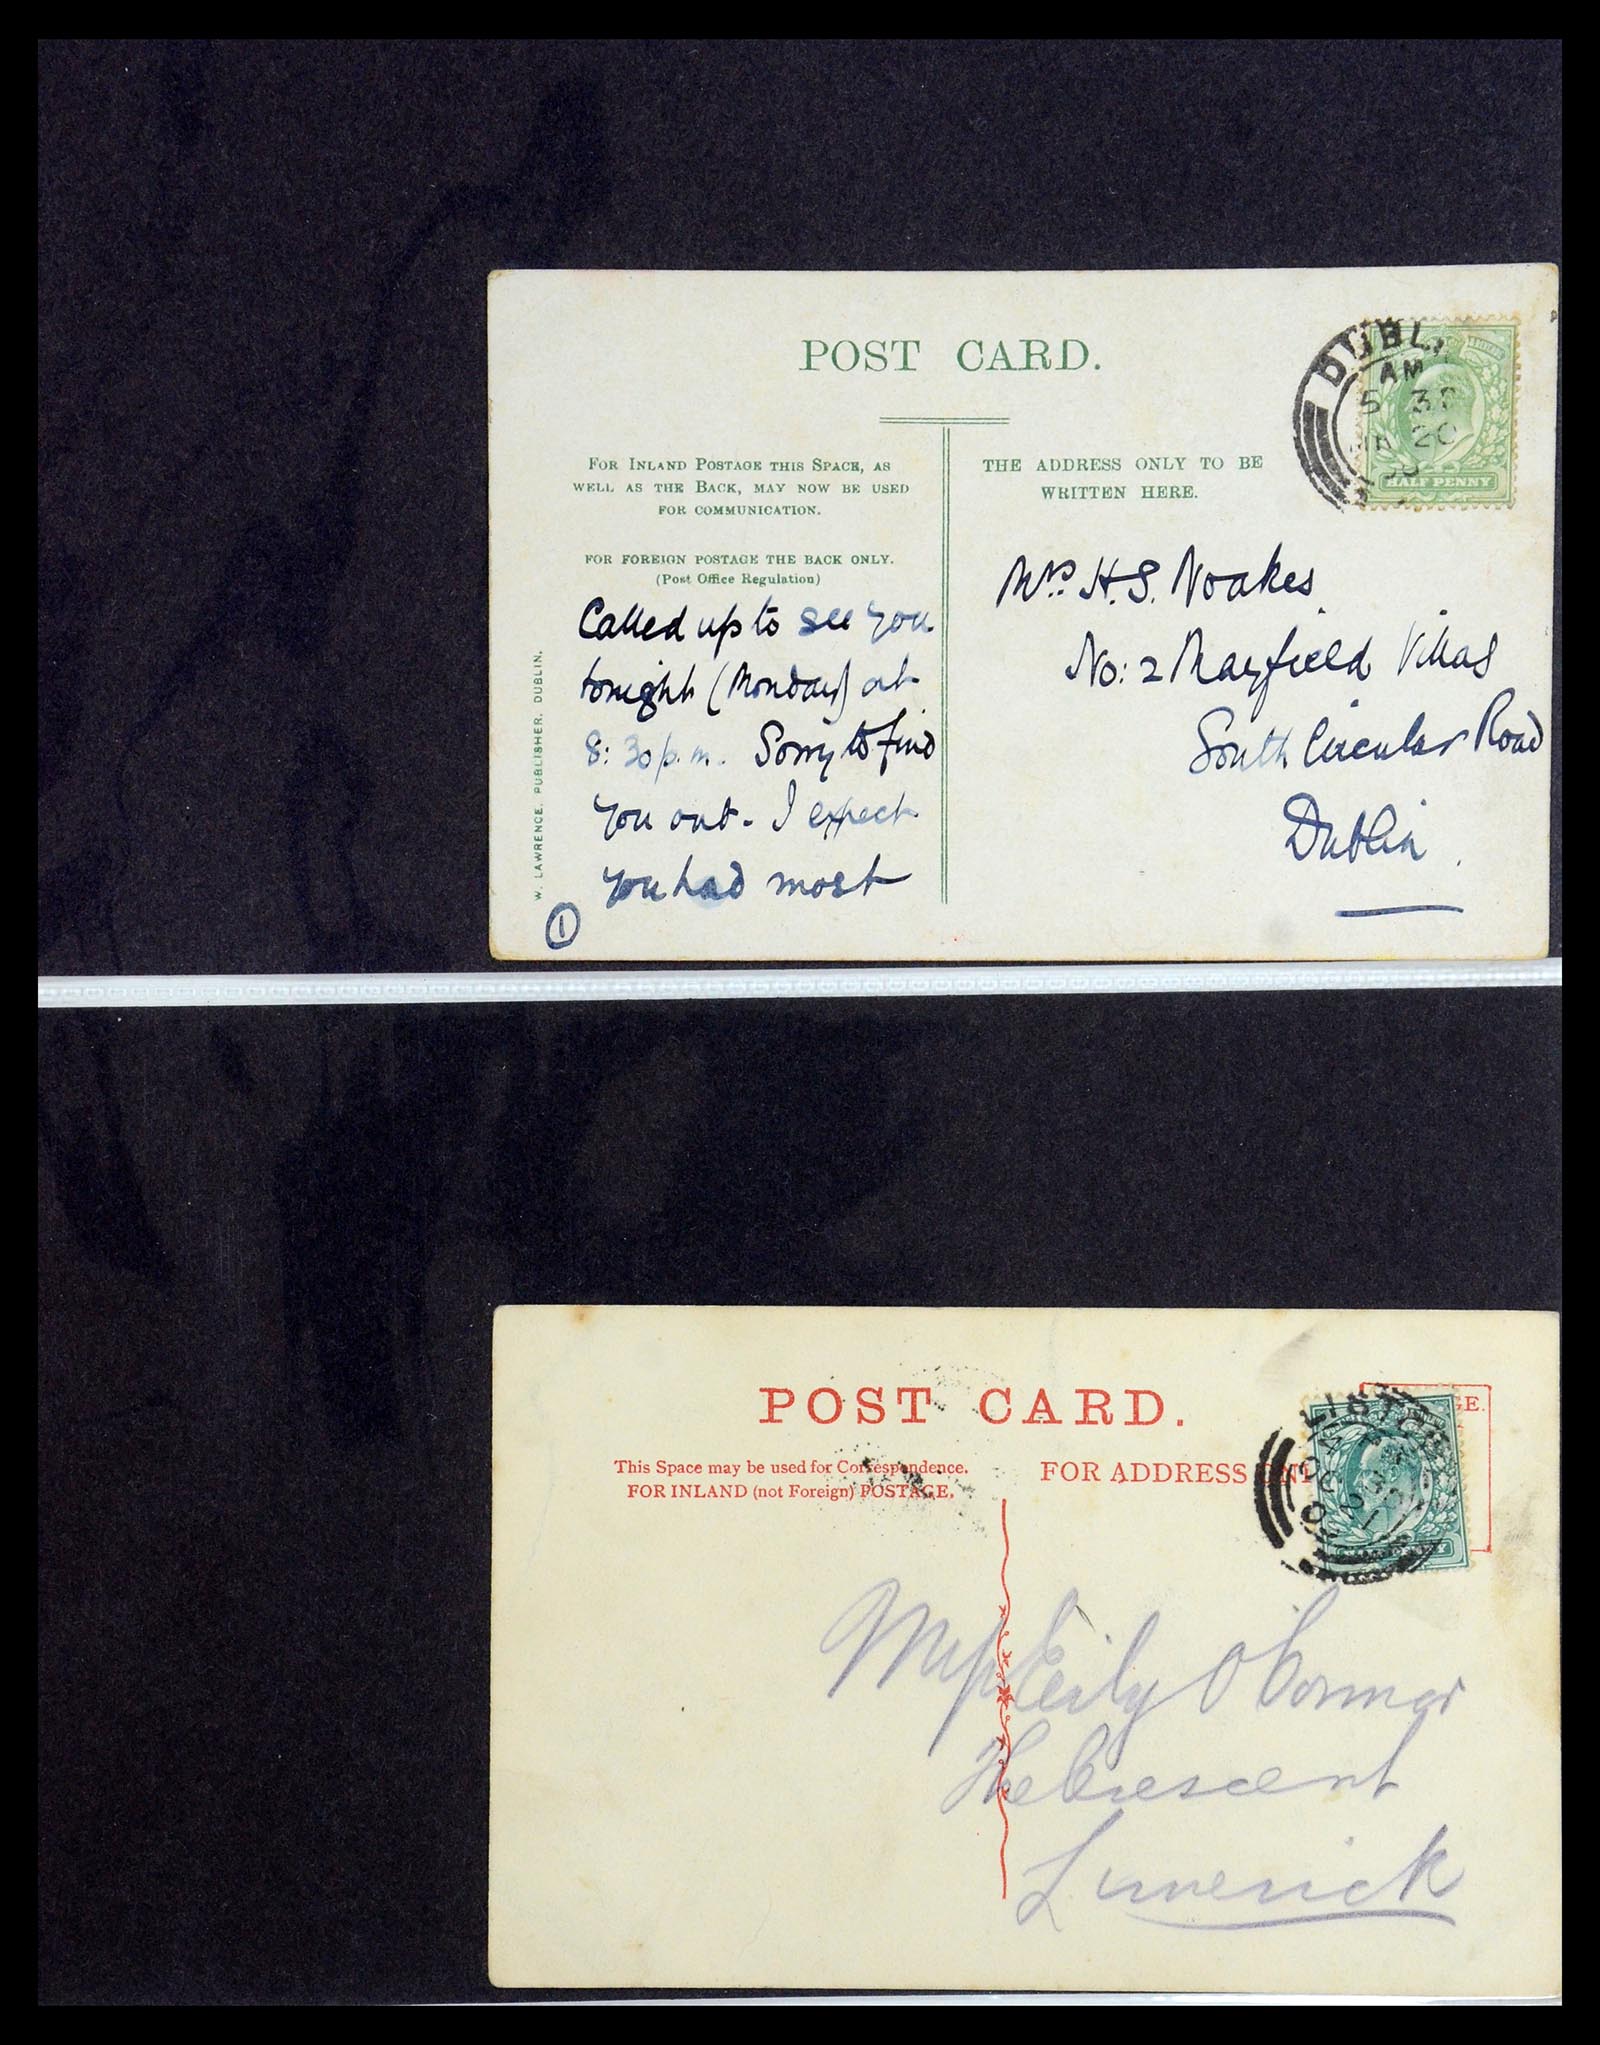 POST CARD.
FOR INLAND POSTAGE THIS SPACE, AS
WELL AS THE BACK, MAY NOW BE USED
FOR COMMUNICATION.
FOR FOREIGN POSTAGE THE BACK ONLY.
(Post Office Regulation)
Called up to see you
tonight (Monday) at
8:30 p.m. Sorry to find
you out - I expect
you had most
1
W. LAWRENCE, PUBLISHER, DUBLIN.
THE ADDRESS ONLY TO BE
WRITTEN HERE.
DUBLI
AM
5 3
20
HALF PENNY
Mrs. H.S. Noakes
No: 2 Mayfield Villas
South Circular Road
Dublin.
POST CARD.
This Space may be used for Correspondence.
FOR INLAND (not Foreign) POSTAGE.
FOR ADDRESS ONL
GE.
LISTO
Miss Eily O'Connor
The Crescent
Limerick